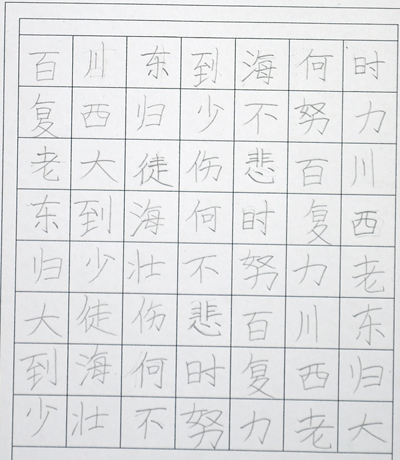 百川东到海何时
复西归少不努力
老大徒伤悲百川
东到海何时复西
归少壮不努力老
大徒伤悲百川东
到海何时复西归
少壮不努力老大